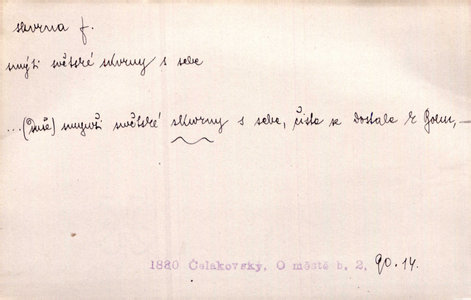 skvrna f.
smýti světské skvrny s sebe
...(Duše) smyvši světské skvrny s sebe, čista se dostala k Bohu,—
1880 Čelakovský, O městě b. 2, 90.14.